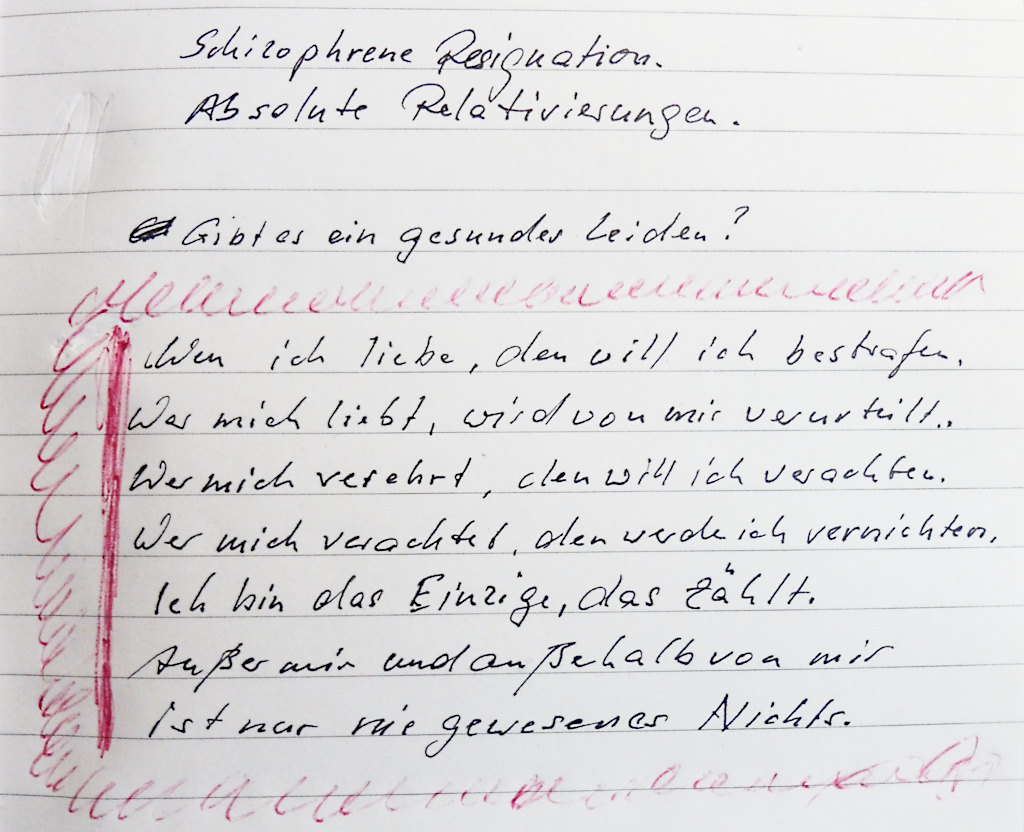 Schizophrene Resignation.
Absolute Relativierungen.
Gibt es ein gesundes Leiden?
Wen ich liebe, den will ich bestrafen.
Wer mich liebt, wird von mir verurteilt.
Wer mich verehrt, den will ich verachten.
Wer mich verachtet, den werde ich vernichten.
Ich bin das Einzige, das zählt.
Außer mir und außerhalb von mir
ist nur nie gewesenes Nichts.